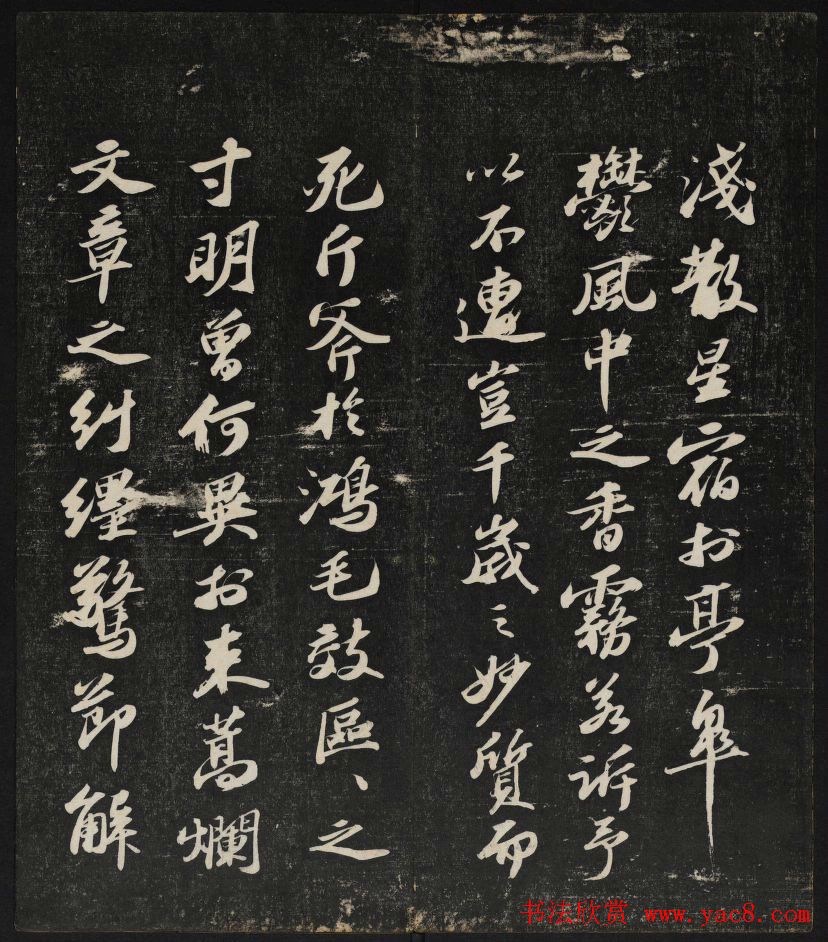 淺散星宿於亭皋
鬱風中之香霧若訴予
以不遭豈千歲之妙質而
死斤斧於鴻毛效區、之
寸明曾何異於束蒿爛
文章之糾纆驚節解
书法欣赏 www.yac8.com